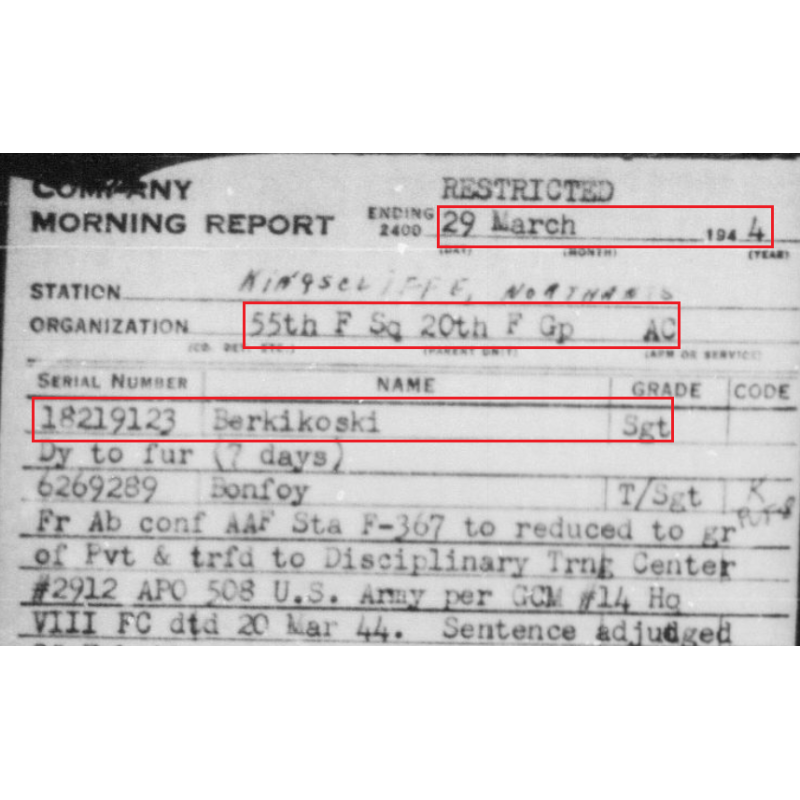 COMPANY RESTRICTED
MORNING REPORT ENDING 2400 29 March 194 4
(DAY) (MONTH) (YEAR)
STATION KINGSCLIFFE, NORTHANTS
ORGANIZATION 55th F Sq 20th F Gp AC
(CO. DET. ETC.) (PARENT UNIT) (ARM OR SERVICE)
SERIAL NUMBER NAME GRADE CODE
18219123 Berkikoski Sgt
Dy to fur (7 days)
6269289 Bonfoy T/Sgt K
Fr Ab conf AAF Sta F-367 to reduced to gr
of Pvt & trfd to Disciplinary Trng Center
#2912 APO 508 U.S. Army per GCM #14 Hq
VIII FC dtd 20 Mar 44. Sentence adjudged